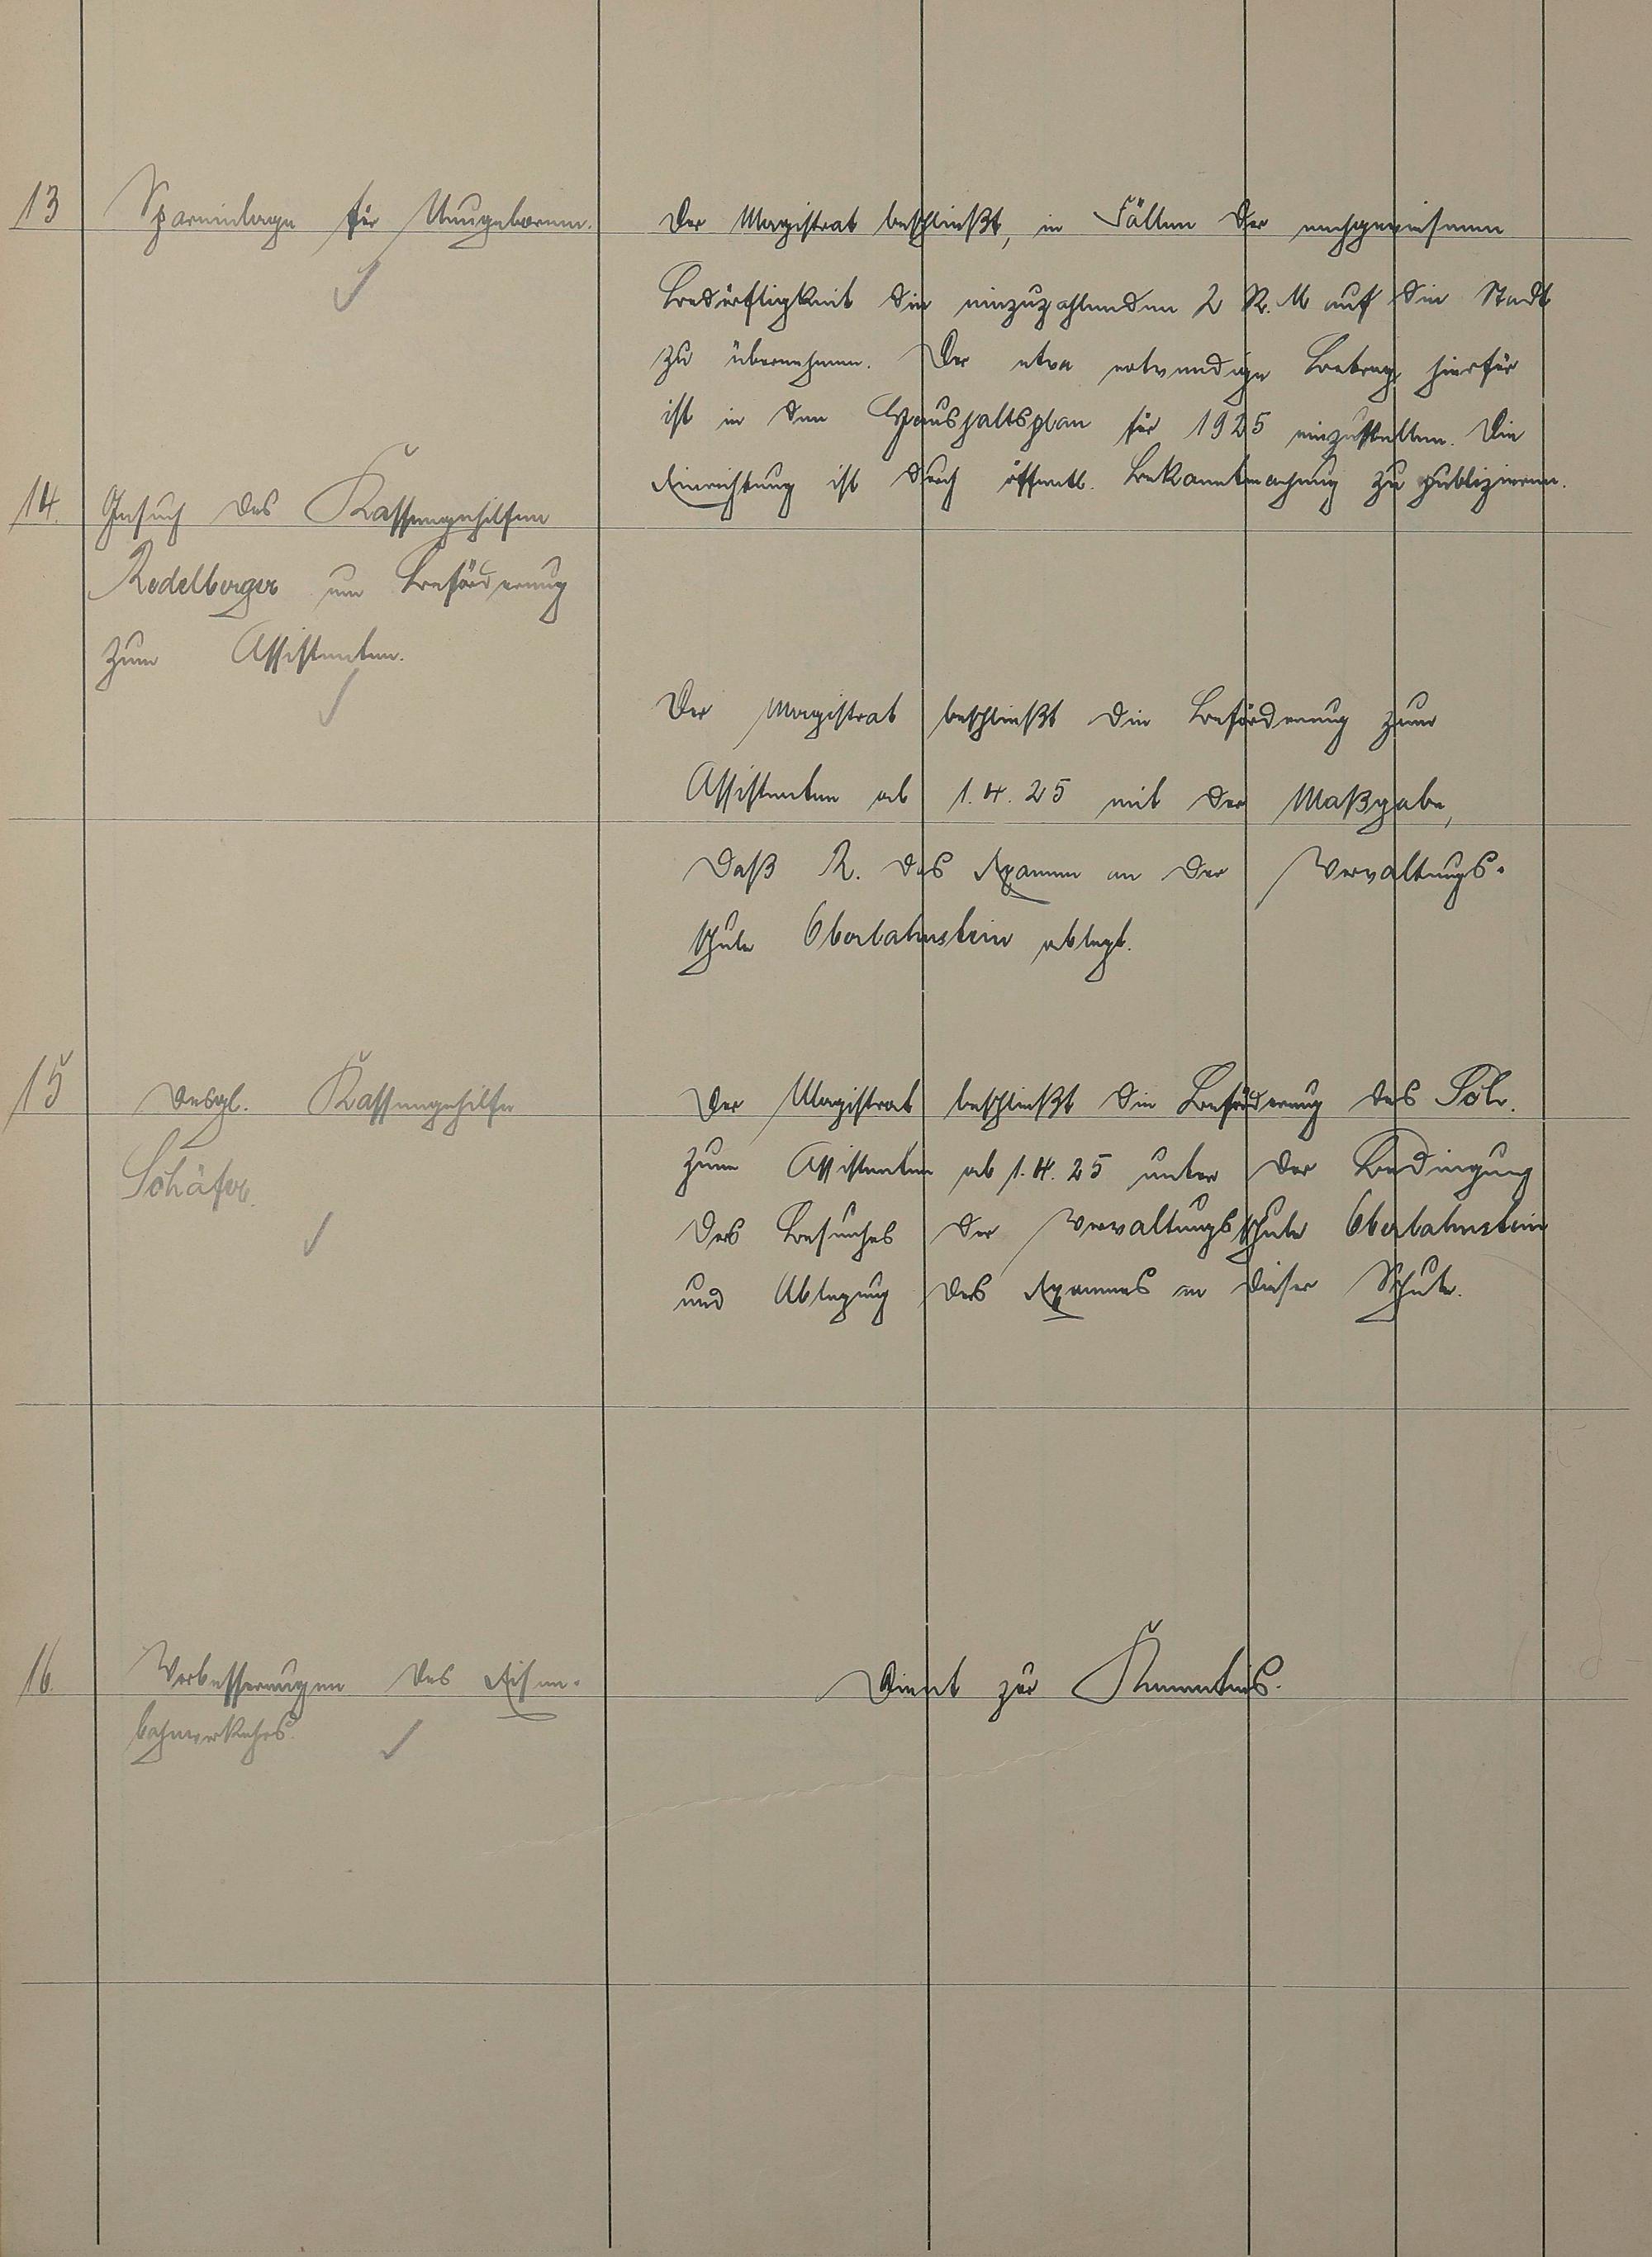 13
Spareinlage für Neugeborene.
Der Magistrat beschließt, in Fällen der nachgewiesenen
Bedürftigkeit die einzuzahlenden 2 R. M auf die Stadt
zu übernehmen. Der etwa notwendige Betrag hierfür
ist in den Haushaltsplan für 1925 einzustellen. Die
Einrichtung ist durch öffentl. Bekanntmachung zu publizieren.
14.
Gesuch des Kassengehilfen
Redelberger um Beförderung
zum Assistenten.
Der Magistrat beschließt die Beförderung zum
Assistenten ab 1.4.25 mit der Maßgabe,
daß R. das Examen an der Verwaltungs-
schule Oberlahnstein ablegt.
15
desgl. Kassengehilfe
Schäfer.
Der Magistrat beschließt die Beförderung des Sch.
zum Assistenten ab 1.4.25 unter der Bedingung
des Besuches der Verwaltungsschule Oberlahnstein
und Ablegung des Examens an dieser Schule.
16.
Verbesserungen des Eisen-
bahnverkehrs.
Dient zur Kenntnis.